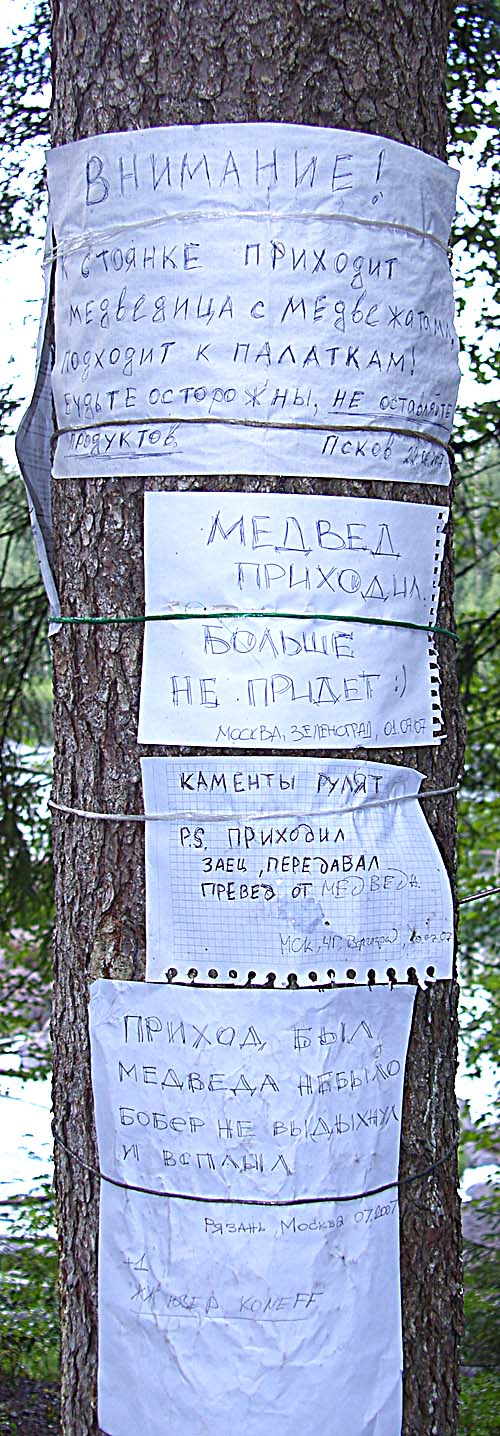 ВНИМАНИЕ!
К СТОЯНКЕ ПРИХОДИТ
МЕДВЕДИЦА С МЕДВЕЖАТАМИ,
ПОДХОДИТ К ПАЛАТКАМ!
БУДЬТЕ ОСТОРОЖНЫ, НЕ ОСТАВЛЯЙТЕ
ПРОДУКТОВ.
ПСКОВ
МЕДВЕД
ПРИХОДИЛ.
БОЛЬШЕ
НЕ ПРИДЕТ :)
МОСКВА, ЗЕЛЕНОГРАД, 01.07.07
КАМЕНТЫ РУЛЯТ
P.S. ПРИХОДИЛ
ЗАЕЦ, ПЕРЕДАВАЛ
ПРЕВЕД ОТ МЕДВЕДА.
МСК, ЧГ,
ПРИХОД, БЫЛ,
МЕДВЕДА НЕБЫЛО
БОБЕР НЕ ВЫДЫХНУЛ
И ВСПЛЫЛ
РЯЗАНЬ, МОСКВА 07.2007
+1
ЖЖ ЮЗЕР KOMEFF